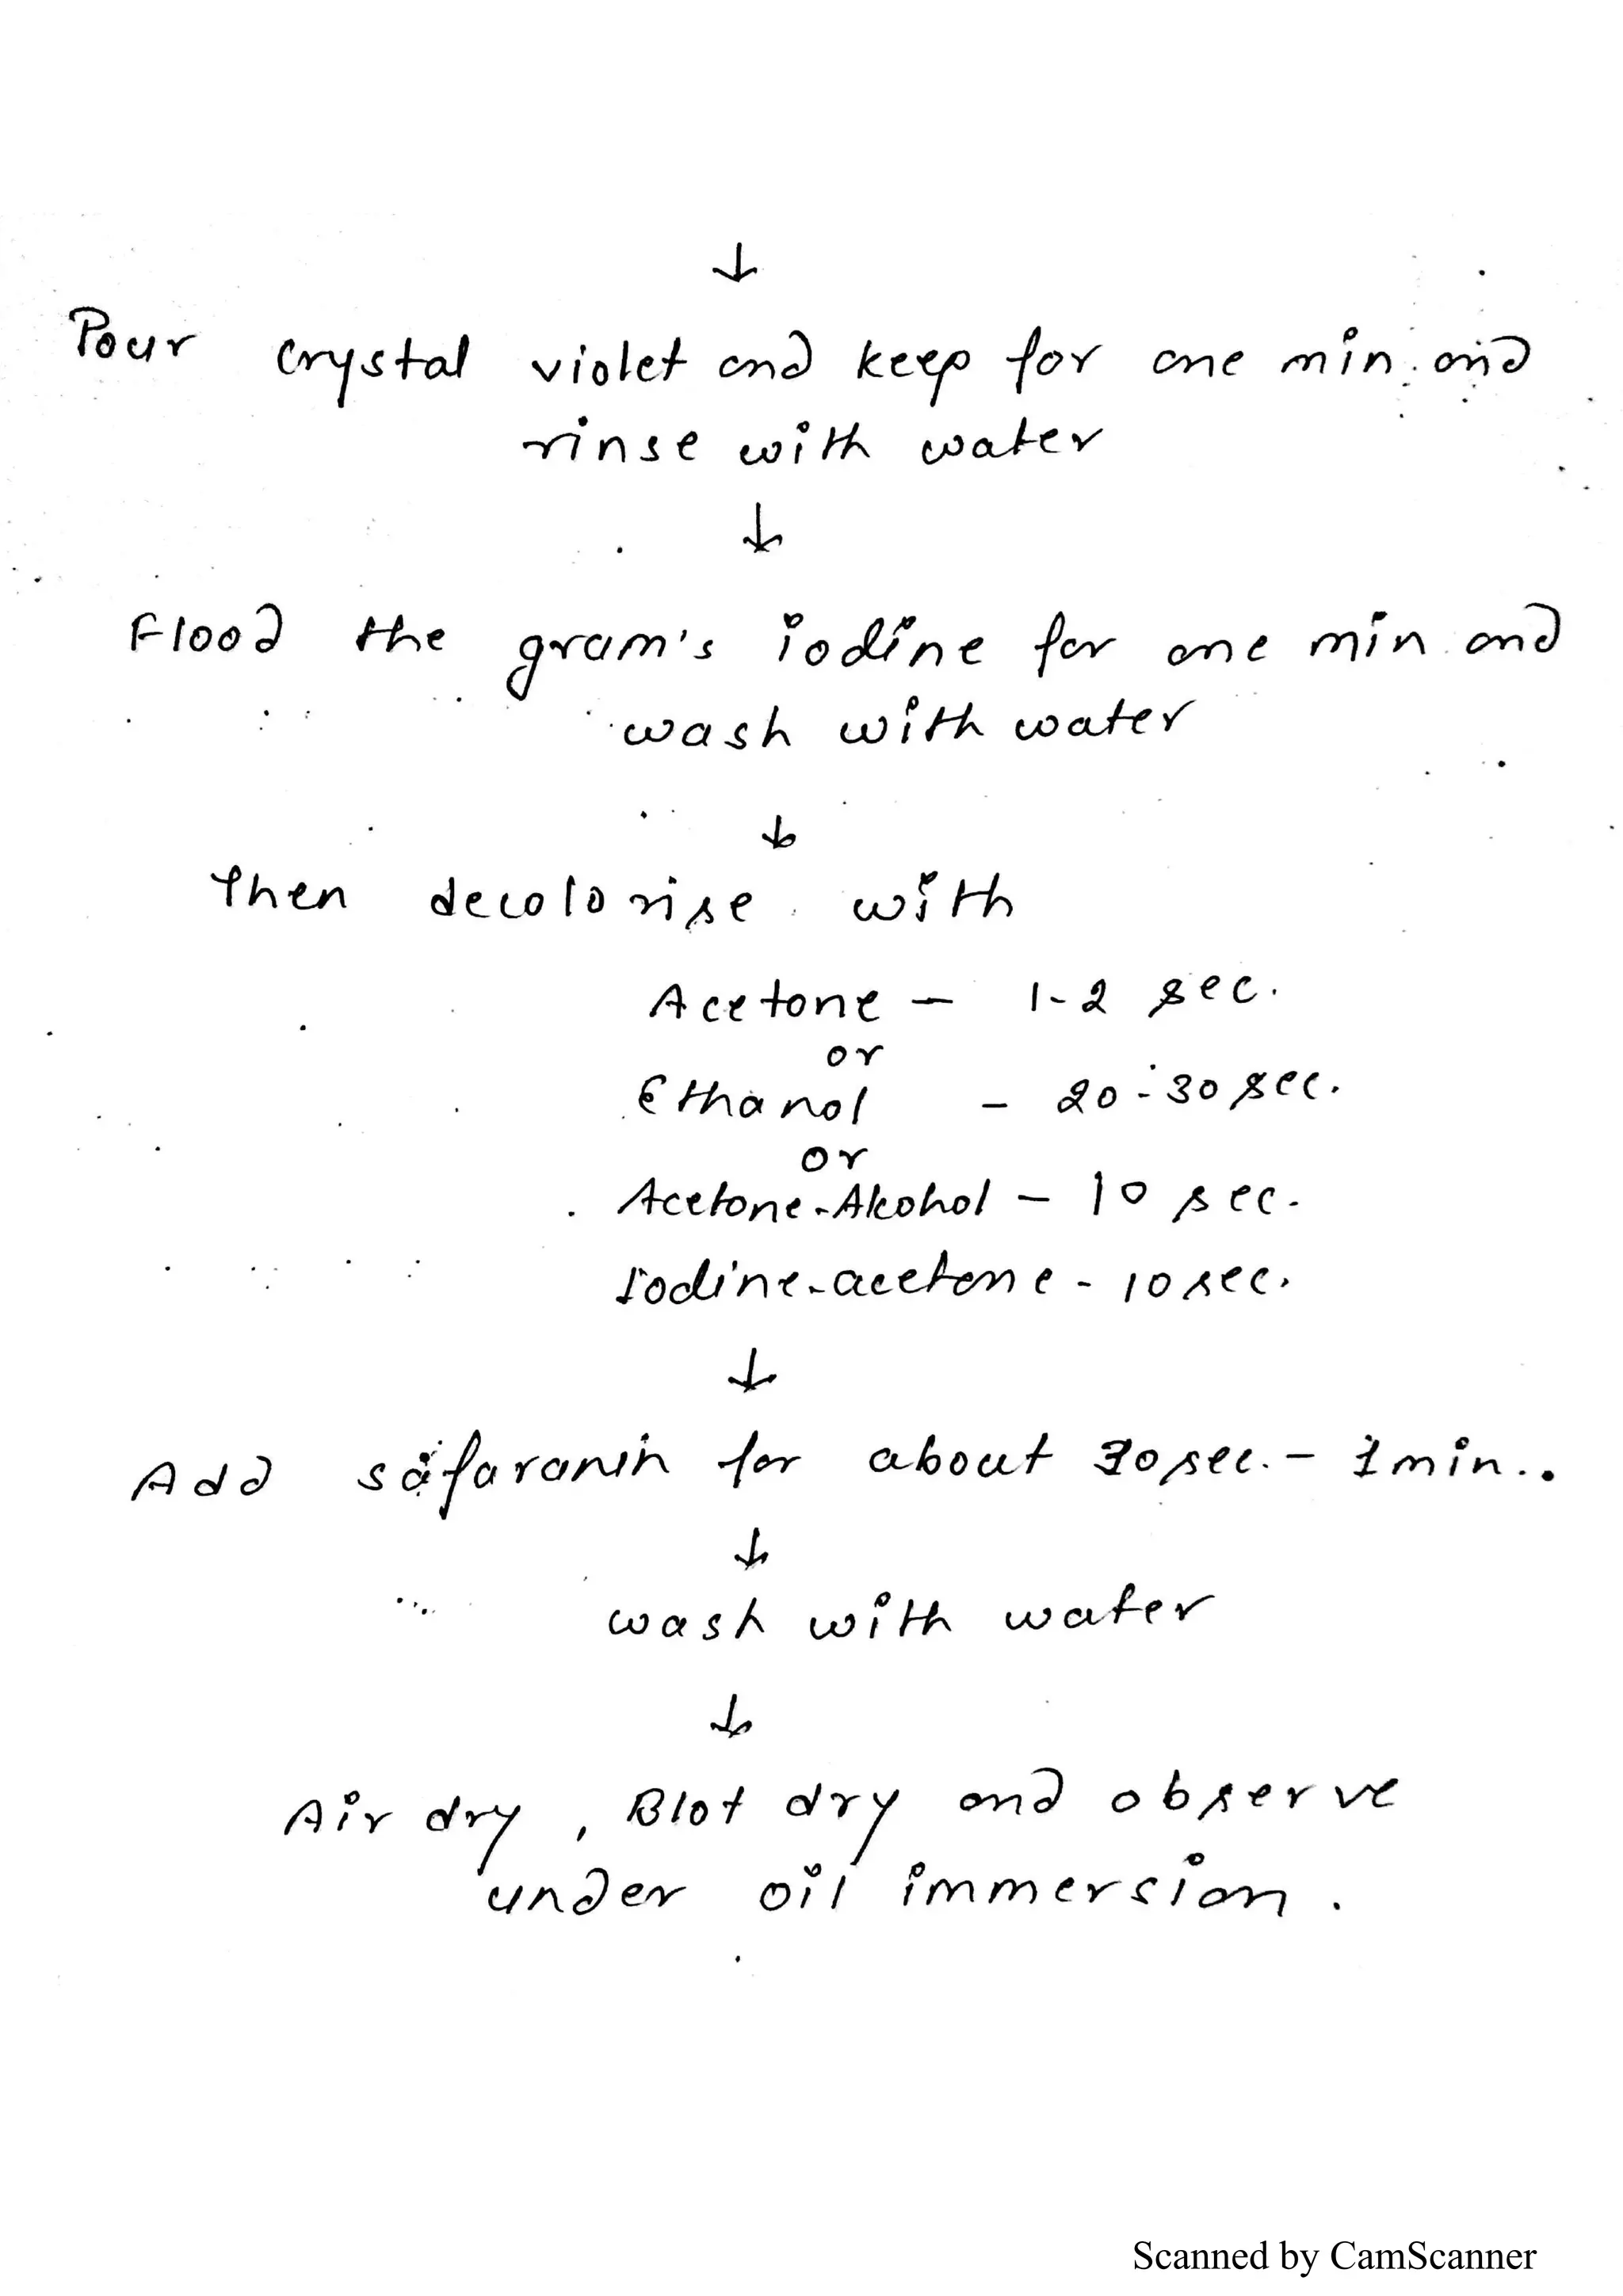 ↓
Pour crystal violet and keep for one min. and
rinse with water
↓
Flood the gram's iodine for one min and
wash with water
↓
Then decolorise with
Acetone – 1-2 sec.
or
Ethanol – 20-30 sec.
or
Acetone-Alcohol – 10 sec.
Iodine-acetone - 10 sec.
↓
Add safaranin for about 30 sec. – 1 min..
↓
wash with water
↓
Air dry, Blot dry and observe
under oil immersion.
Scanned by CamScanner